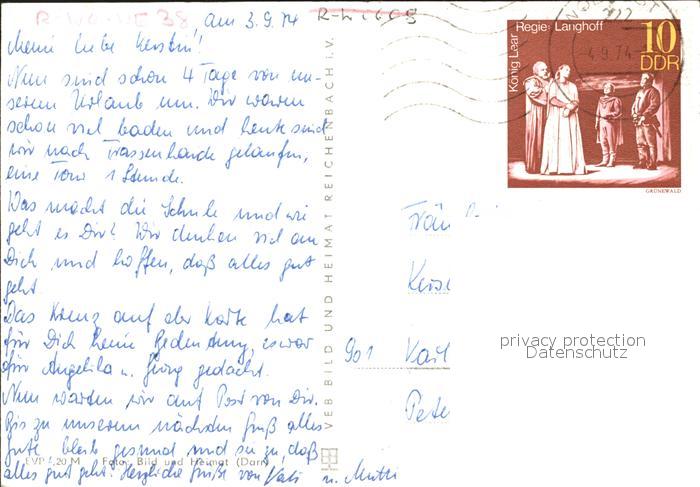 R-WG-WE 38 am 3.9.74
Meine liebe Kerstin!
Nun sind schon 4 Tage von un-
serem Urlaub um. Wir waren
schon viel baden und heute sind
wir nach Trassenheide gelaufen,
eine Tour 1 Stunde.
Was macht die Schule und wie
geht es Dir? Wir denken viel an
Dich und hoffen, daß alles gut
geht.
Das Kreuz auf der Karte hat
für Dich keine Bedeutung, es war
für Angelika u. gedacht.
Nun warten wir auf Post von Dir.
Bis zu unserem nächsten Gruß alles
gute bleib gesund und sie zu, daß
alles gut geht. Herzliche Grüße von Vati u. Mutti
EVP 0,20 M Foto: Bild und Heimat (Darr)
VEB BILD UND HEIMAT REICHENBACH i. V.
König Lear Regie: Langhoff
10
DDR
GRÜNEWALD
4.9.74
Fräu
901
privacy protection
Datenschutz